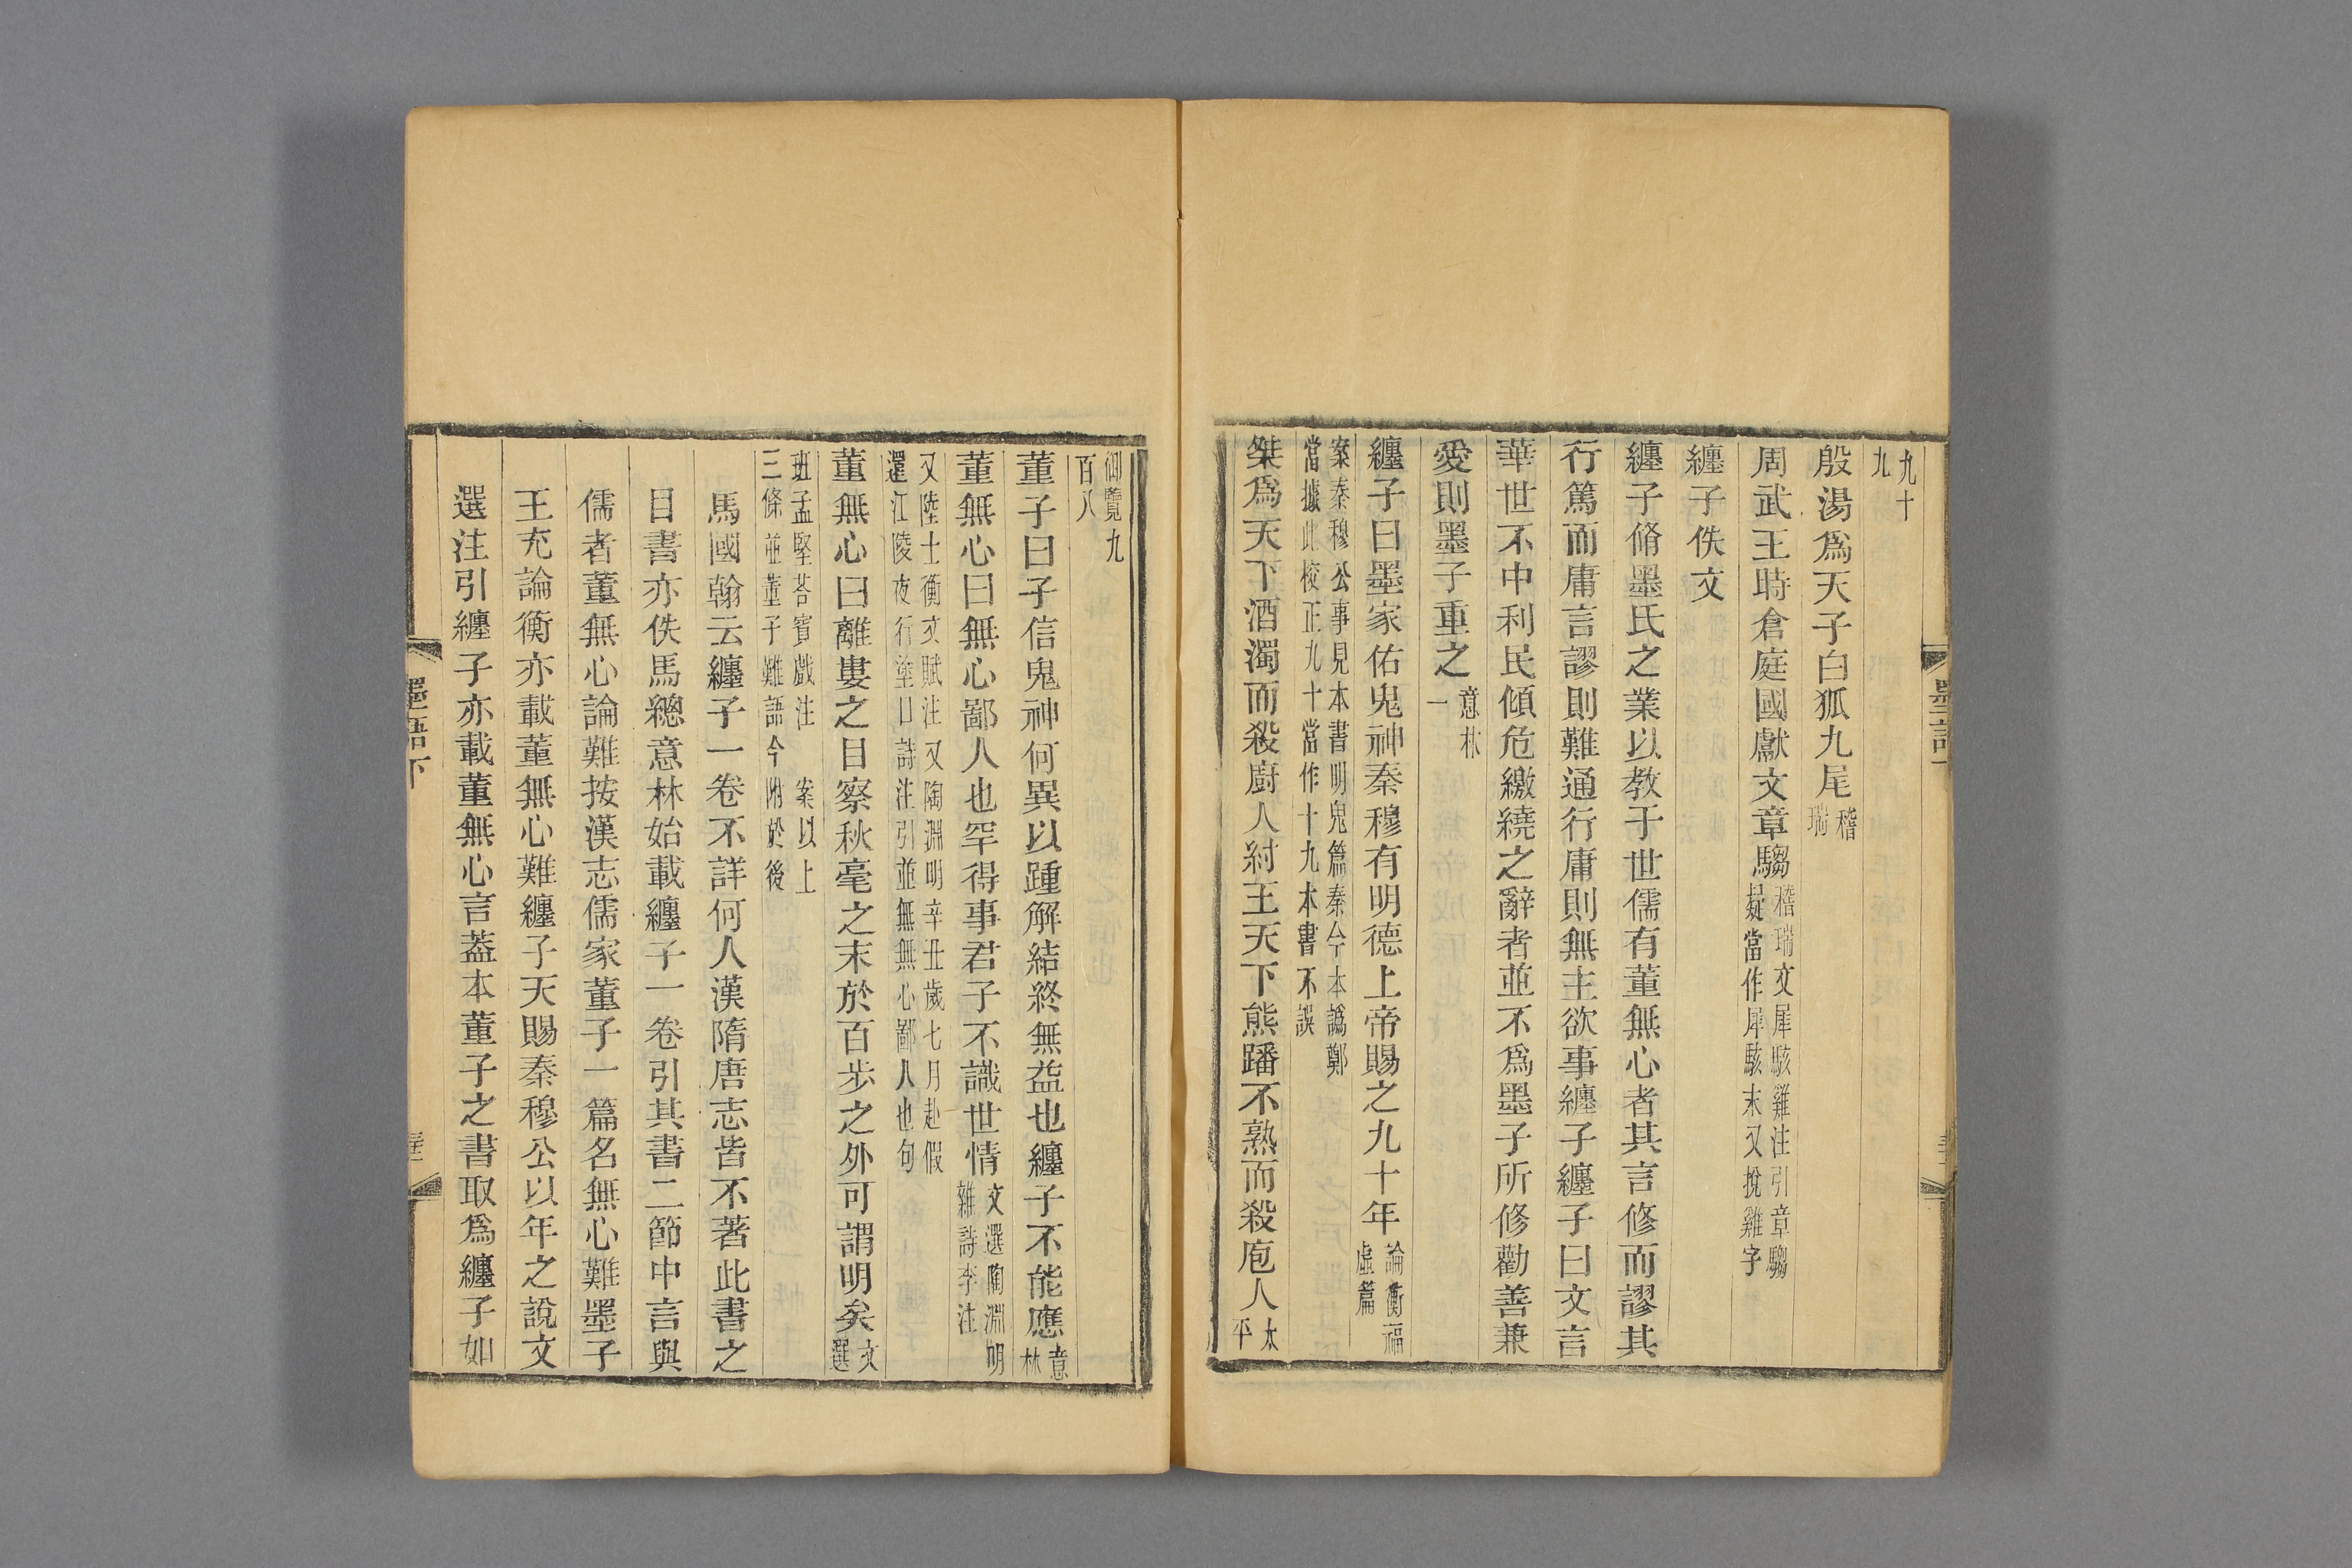 九十
九
殷湯爲天子白狐九尾稽瑞
周武王時倉庭國獻文章騶稽瑞文犀駭雞注引章騶
疑當作犀駭末又挩雞字
纏子佚文
纏子脩墨氏之業以教于世儒有董無心者其言修而謬其
行篤而庸言謬則難通行庸則無主欲事纏子纏子曰文言
華世不中利民傾危繳繞之辭者並不爲墨子所修勸善兼
愛則墨子重之意林一
纏子曰墨家佑鬼神秦穆有明德上帝賜之九十年論衡福虛篇
案秦穆公事見本書明鬼篇秦今本譌鄭
當據此校正九十當作十九本書不誤
桀爲天下酒濁而殺廚人紂王天下熊蹯不熟而殺庖人太平
御覽九
百八
董子曰子信鬼神何異以踵解結終無益也纏子不能應意林
董無心曰無心鄙人也罕得事君子不識世情文選陶淵明雜詩李注
又陸士衡文賦注又陶淵明辛丑歲七月赴假
還江陵夜行塗口詩注引並無無心鄙人也句
董無心曰離婁之目察秋毫之末於百步之外可謂明矣文選
班孟堅荅賓戲注 案以上
三條並董子難語今附於後
馬國翰云纏子一卷不詳何人漢隋唐志皆不著此書之
目書亦佚馬總意林始載纏子一卷引其書二節中言與
儒者董無心論難按漢志儒家董子一篇名無心難墨子
王充論衡亦載董無心難纏子天賜秦穆公以年之說文
選注引纏子亦載董無心言蓋本董子之書取爲纏子如
墨語下